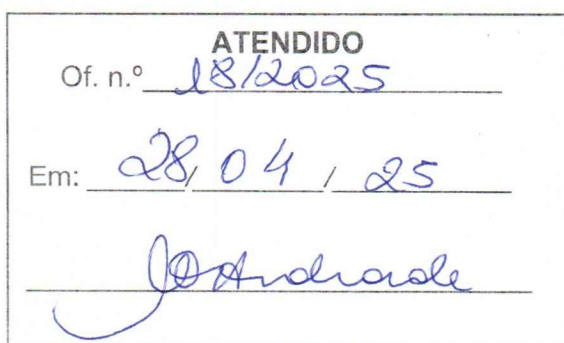 ATENDIDO
Of. n.º 18/2025
Em: 28 / 04 / 25
Andrade